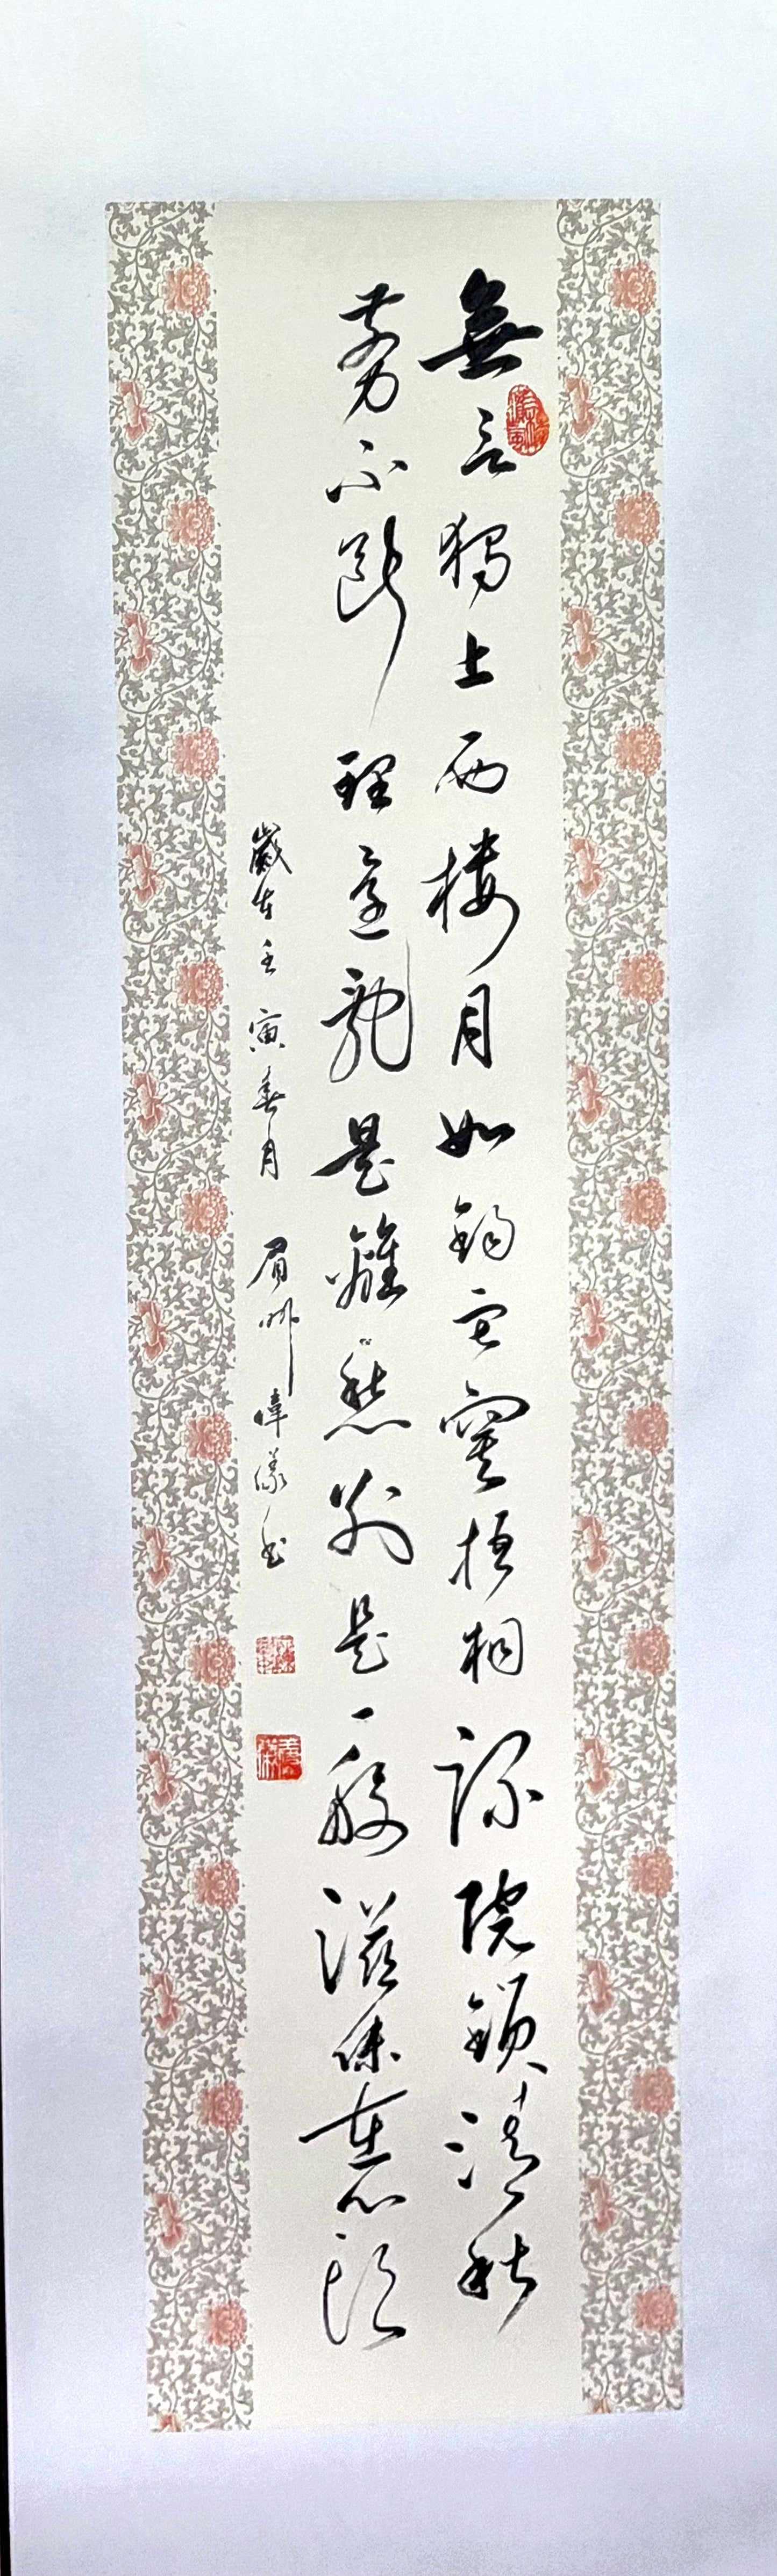 無言獨上西樓月如鉤寂寞梧桐深院鎖清秋
剪不斷理還亂是離愁別是一般滋味在心頭
歲在壬寅春月 眉州偉書